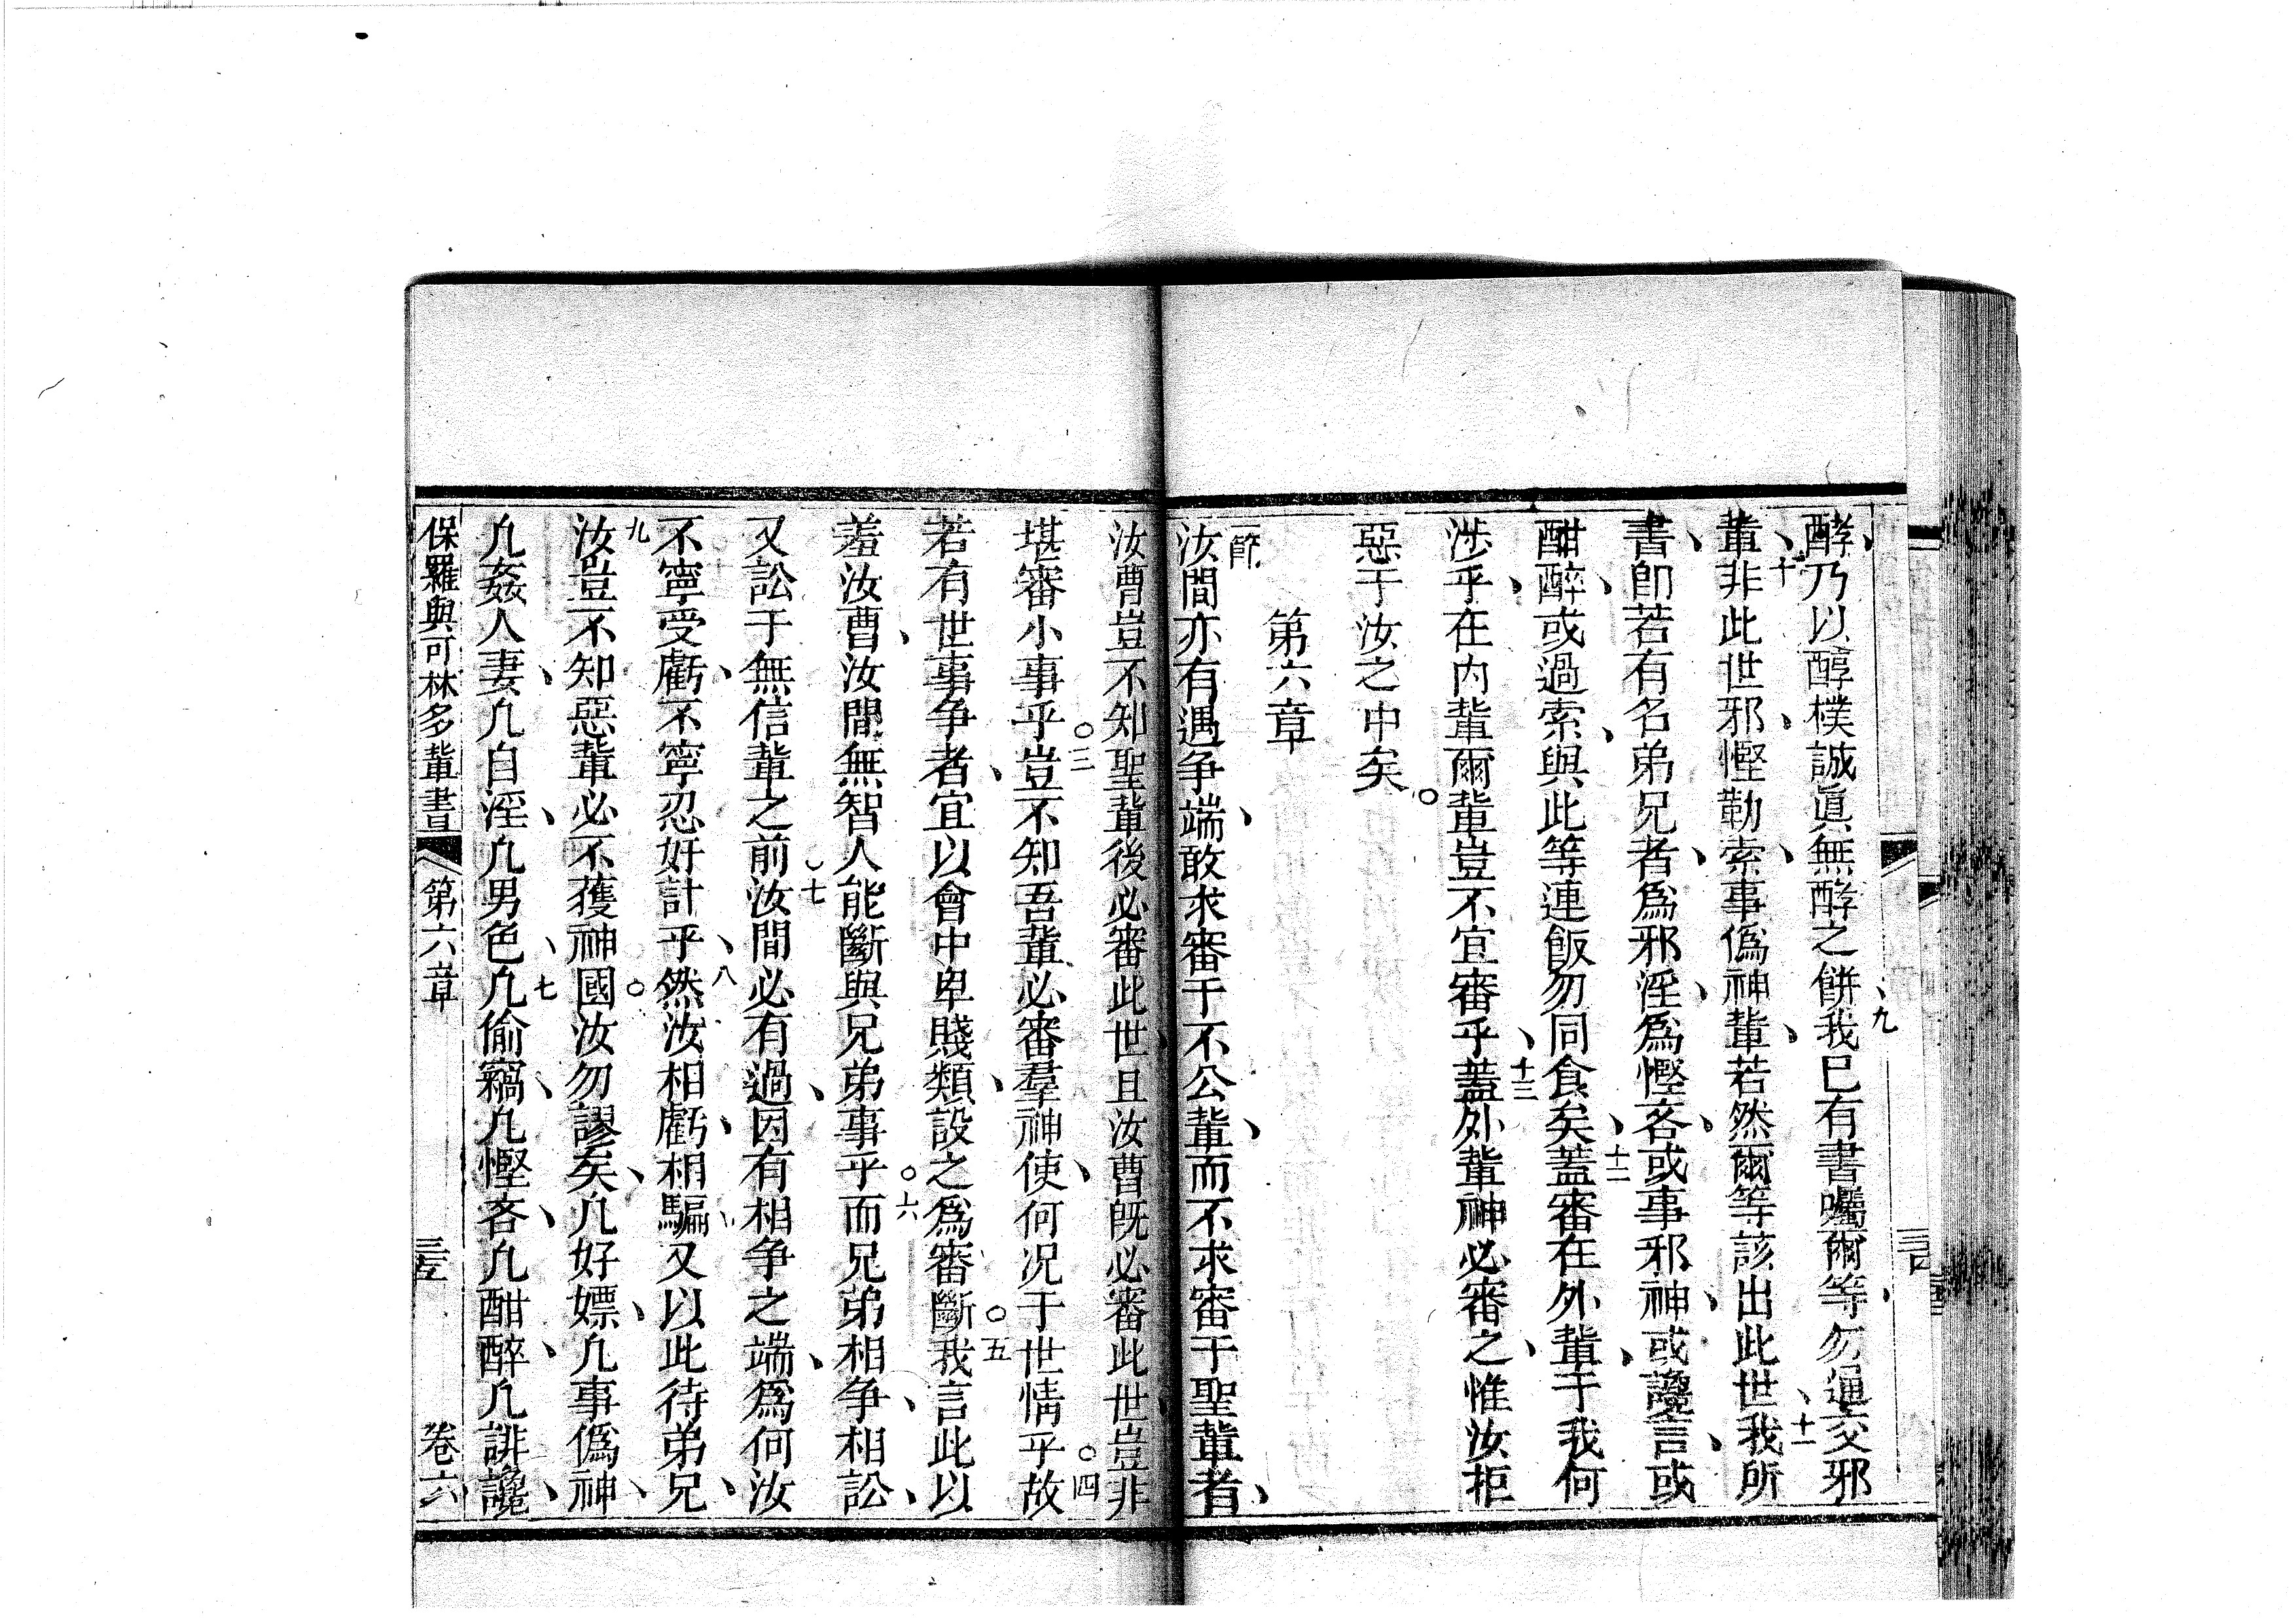 酵乃以醇樸誠眞無酵之餅、九我已有書囑爾等、勿通交邪
輩、十非此世邪、慳勒索、事偽神輩、若然爾等該出此世、十一我所
書、卽若有名弟兄者、爲邪淫、爲慳吝、或事邪神、或讒言、或
酣醉、或過索、與此等連飯勿同食矣、十二蓋審在外輩、于我何
涉乎、在內輩爾輩豈不宜審乎、十三蓋外輩神必審之、惟汝拒
惡于汝之中矣。
第六章
一節
汝間亦有遇争端、敢求審于不公輩、而不求審于聖輩者、
汝曹豈不知聖輩後必審此世、且汝曹旣必審此世、豈非
堪審小事乎。三豈不知吾輩必審羣神使、何况于世情乎。四故
若有世事争者、宜以會中卑賤類、設之爲審斷。五我言此以
羞汝曹、汝間無智人能斷與兄弟事乎。六而兄弟相争、相訟、
又訟于無信輩之前。七汝間必有過、因有相争之端、爲何汝
不寧受虧、不寧忍奸計乎、八然汝相虧、相騙、又以此待弟兄、
九汝豈不知惡輩必不獲神國。汝勿謬矣、凢好嫖、凢事偽神、
凢姦人妻、凢自淫、凢男色、七凢偷竊、凢慳吝、凢酣醉、凢誹讒、
保羅與可林多輩書 第六章 卷六